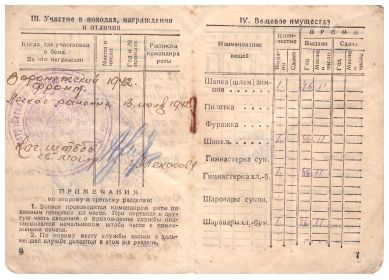 III. Участие в походах, награждения
и отличия
Когда, где участвовал
в боях.
На что награжден
Месяц и
число
Год и №
приказа
Расписка
командира
роты
Воронежский 1942
фронт.
Легкое ранение 13 июля 1942
Нач. штаба
майор
ПРИМЕЧАНИЯ
ко второму и третьему разделам:
1. Записи производятся командиром роты по
данным приказов по части. При переводе в дру-
гую часть сведения о прохождении службы под-
писываются начальником штаба части с прило-
жением печати.
2. По новому месту службы записи о даль-
нейшей службе делаются в этом же разделе.
6
IV. Вещевое имущество
Наименование
вещей
Количество
Выдано
Сдано
ВРЕМЯ
Выдачи
Сдачи
Год
Месяц
и число
Год
Месяц
и число
Шапка (шлем) зим-
няя 1 46 11
Пилотка
Фуражка
Шинель 1 46 11
Гимнастерка сукон.
Гимнастерка хл.-б. 1 46 11
Шаровары сукон.
Шаровары хл.-бум. 1 46 11
7